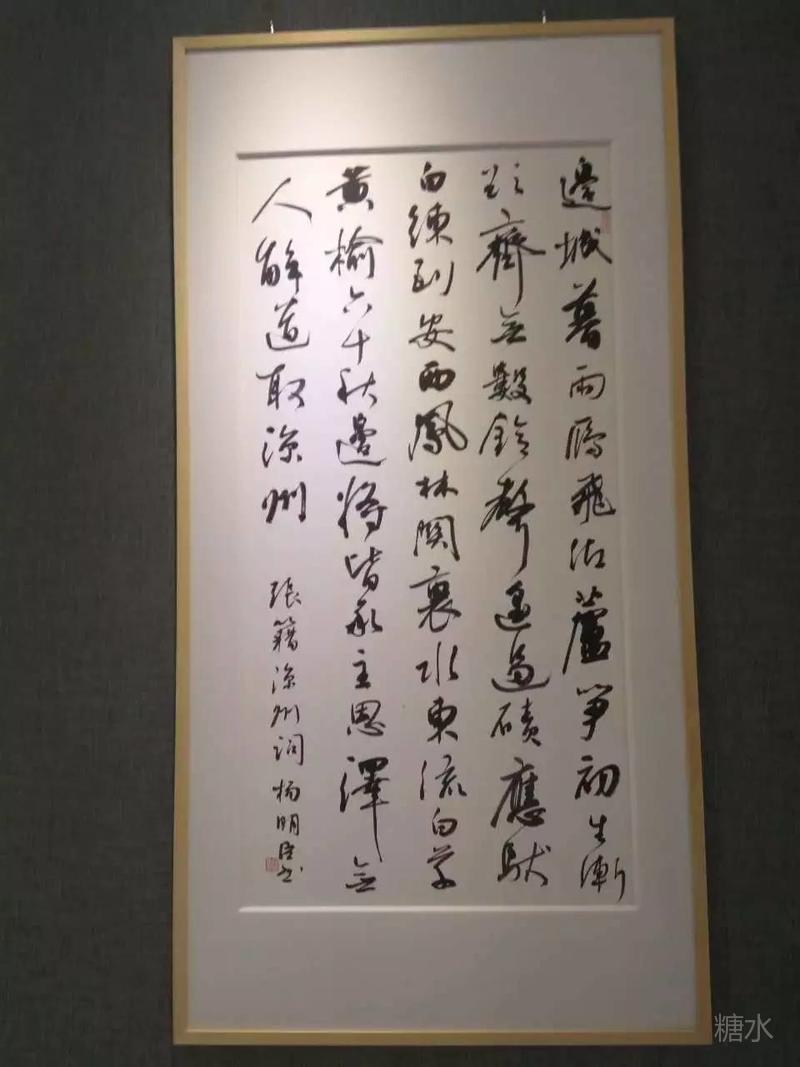 邊城暮雨鴈飛低蘆笋初生漸
欲齊無數鈴聲遥過磧應馱
白練到安西鳳林關裏水東流白草
黄榆六十秋邊將皆承主恩澤無
人解道取涼州
張籍涼州詞楊明臣書
糖水